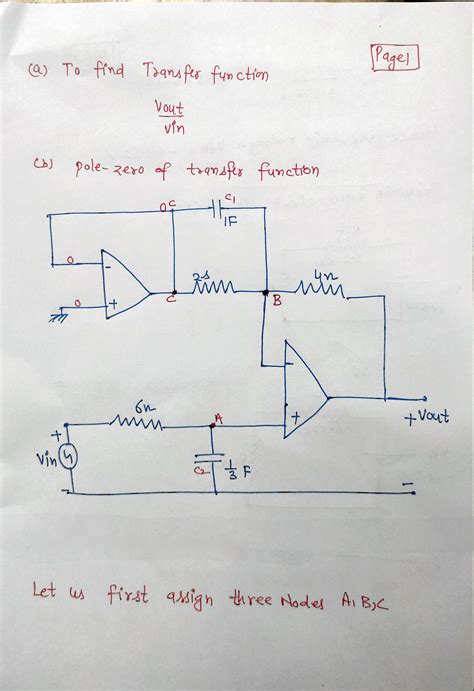 Page1
(a) To find Transfer function
Vout
Vin
(b) pole-zero of transfer function
0C
C1
1F
0
-
2Ω
4Ω
0
+
C
B
-
6Ω
A
+
+Vout
+
Vin
C2
1/3 F
-
Let us first assign three Nodes A, B, C